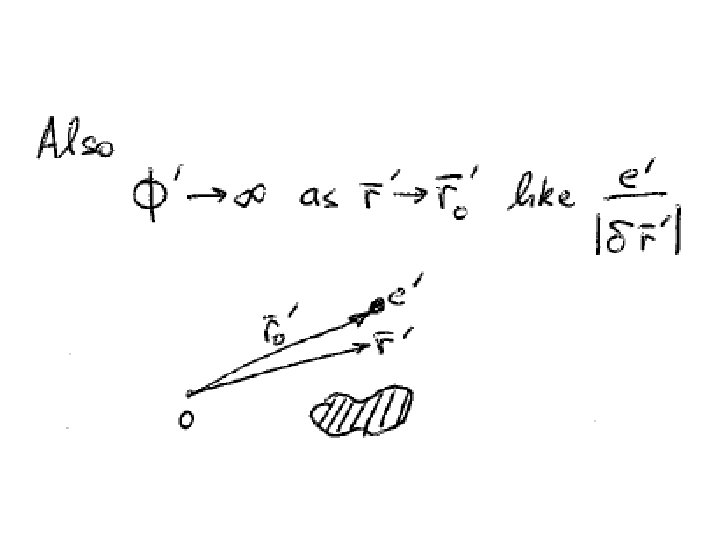 Also
Φ′ → ∞ as r̄′ → r̄₀′ like e′/|δr̄′|
e′
r̄₀′
r̄′
0